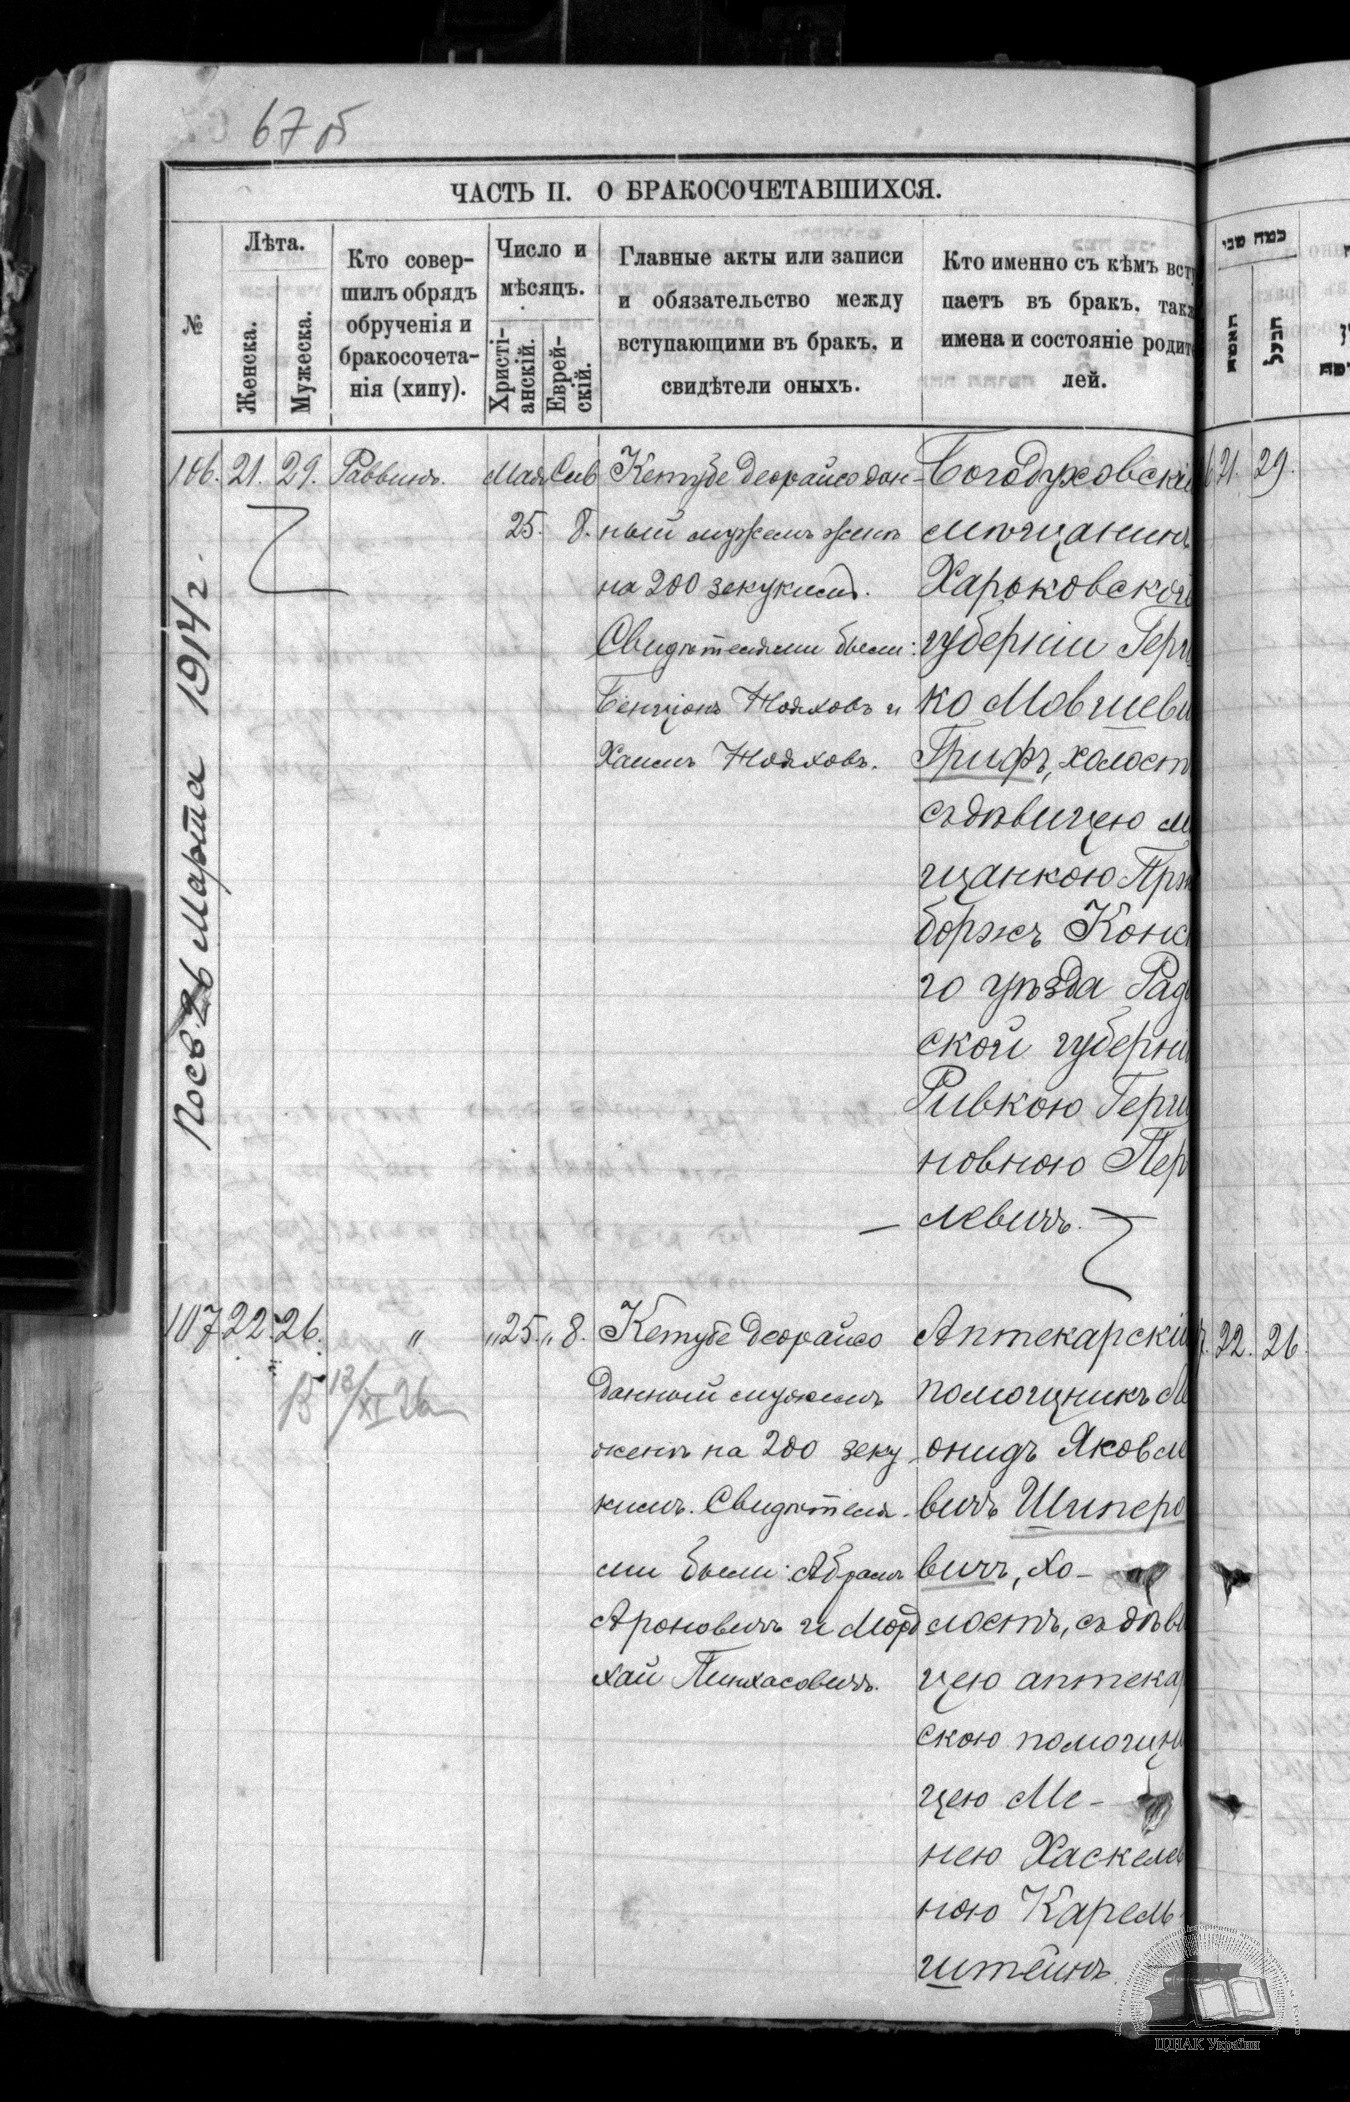 67 об
ЧАСТЬ II. О БРАКОСОЧЕТАВШИХСЯ.
№
Лѣта.
Женска.
Мужеска.
Кто совер-
шилъ обрядъ
обрученія и
бракосочета-
нія (хипу).
Число и
мѣсяцъ.
Христі-
анскій.
Еврей-
скій.
Главные акты или записи
и обязательство между
вступающими въ бракъ, и
свидѣтели оныхъ.
Кто именно съ кѣмъ всту
паетъ въ бракъ, такж
имена и состояніе родит
лей.
כמה שני
האשה
הבעל
106. 21. 29. Раввинъ. Мая Сив
25. 8.
Кетубе деорайсо дан-
ный мужемъ женѣ
на 200 зекукимъ.
Свидѣтелями были:
Бенціонъ Жодяховъ и
Хаимъ Жодяховъ.
Богодуховскій
мѣщанинъ
Харьковской
губерніи Герш
ко Мовшеви
Грифъ, холостъ
съ дѣвицею м
щанкою Прж
боржъ Конс
го уѣзда Рад
ской губерні
Ривкою Герш
новною Пер
левичъ.
21. 29.
26 Марта 1914 г.
107 22. 26. " " 25. " 8.
18/XI 26
Кетубе деорайсо
данный мужемъ
женѣ на 200 зеку
кимъ. Свидѣтеля-
ми были: Абрамъ
Ароновичъ и Морд
хай Пинхасовичъ.
Аптекарскій
помощникъ Л
онидъ Яковл
вичъ Шиперо
вичъ, хо-
лостъ, съ дѣви
цею аптекар
скою помощн
цею Ме-
нею Хаскеле
ною Карель
штейнъ.
22. 26.
ЦДІАК України